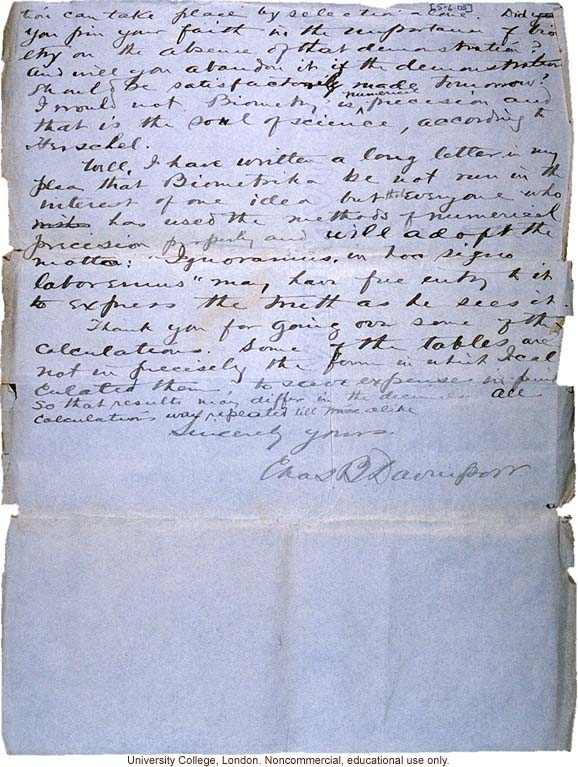 tion can take place by selection alone. Did
you pin your faith in the importance of bio
etry on the absence of that demonstration?
and will you abandon it if the demonstration
should be satisfactorily made tomorrow?
I would not Biometry is numerical precision and
that is the soul of science, according to
Herschel.
Well, I have written a long letter in my
plea that Biometrika be not run in the
interest of one idea but that everyone who
has used the methods of numerical
precision properly and will adopt the
motto: "Ignoramus, in hoc signo
laboremus" may have free entry to it
to express the truth as he sees it.
Thank you for going over some of the
calculations. Some of the tables are
not in precisely the form in which I cal
culated them, to save expenses in
So that results may differ in the decimals. All
calculations were repeated till made alike
Sincerely yours.
Chas B Davenport.
University College, London. Noncommercial, educational use only.